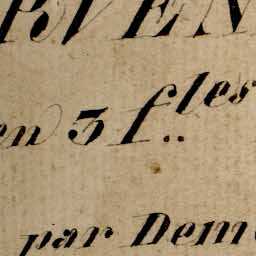 RVEN
en 3 f.les
par Dem